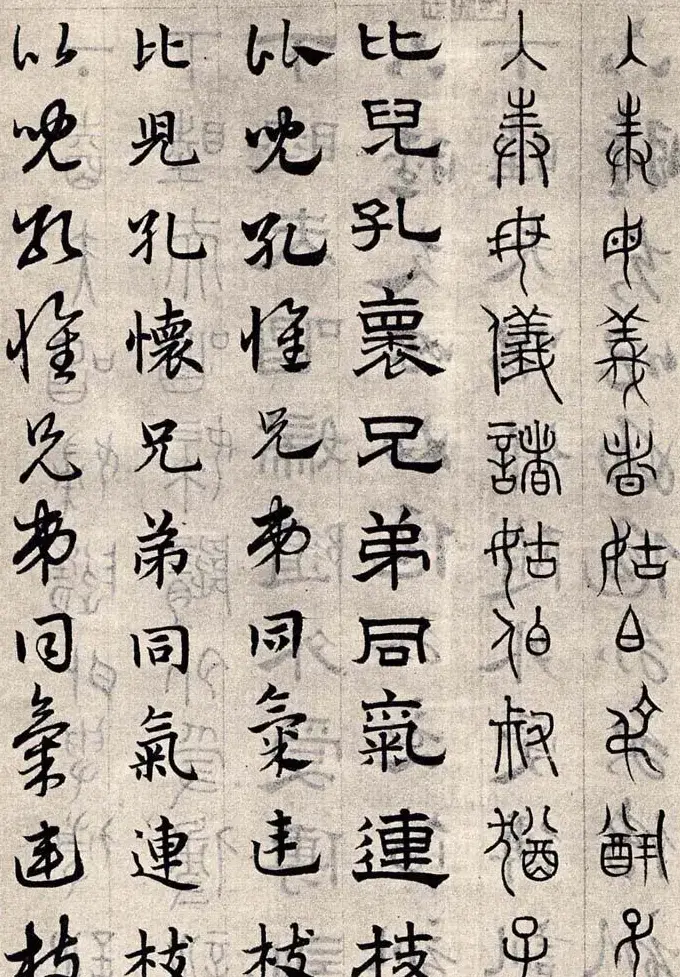 入奉母義者姑白叔猶子
入奉母儀諸姑伯叔猶子
比兒孔褱兄弟同氣連枝
比兒孔懷兄弟同氣連枝
比兒孔懷兄弟同氣連枝
比兒孔懷兄弟同氣連枝